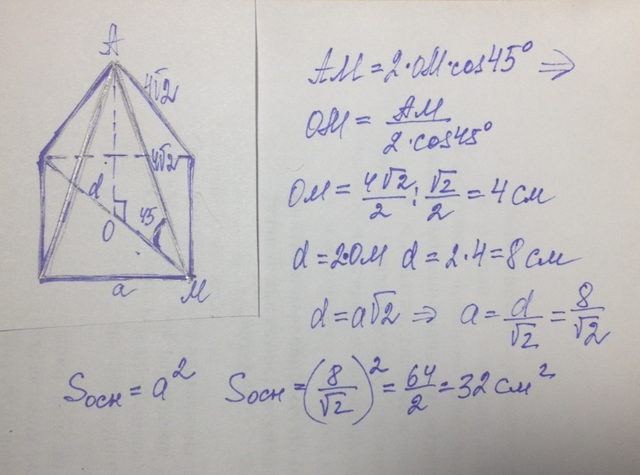 A
4√2
4√2
d
45
O
a
M
AM = 2·OM·cos45° ⇒
OM = AM / 2·cos45°
OM = 4√2/2 : √2/2 = 4 см
d = 2·OM d = 2·4 = 8 см
d = a√2 ⇒ a = d/√2 = 8/√2
Sосн = a² Sосн = (8/√2)² = 64/2 = 32 см²